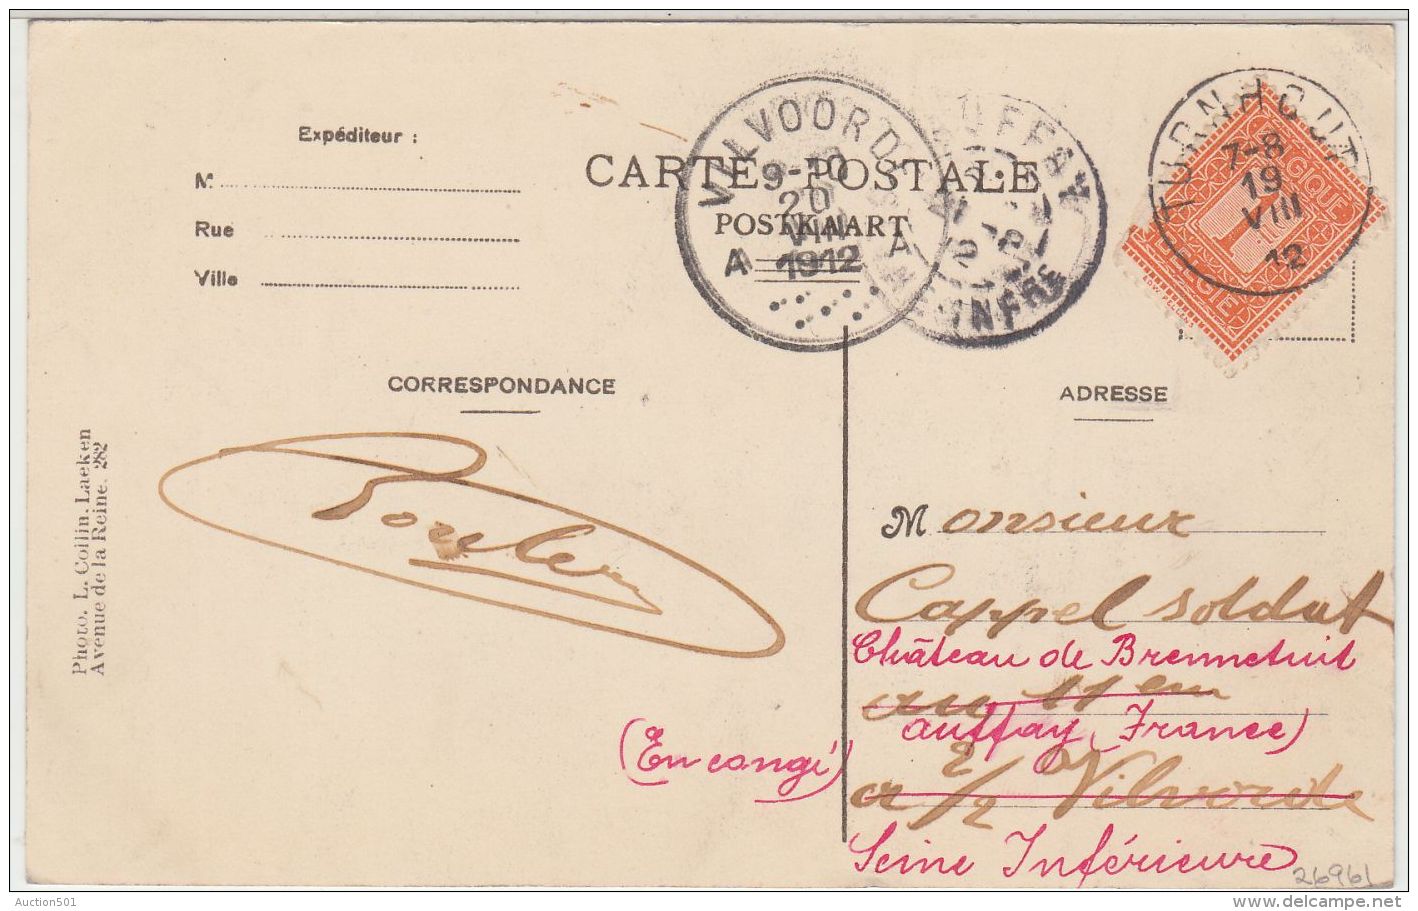 Expéditeur :
M
Rue
Ville
CARTE POSTALE
POSTKAART
VILVOORDE
9-10
20
VIII
1912
A A
AUFFAY
SEINE-INFRE
TURNHOUT
7-8
19
VIII
12
BELGIQUE
BELGIE
CORRESPONDANCE
ADRESSE
Photo. L. Collin, Laeken
Avenue de la Reine. 282
Monsieur
Cappel soldat
Château de Brennetuit
au 11em
Auffay (France)
(En congé)
a 2/2 Vilvorde
Seine Inférieure
26961
Auction501
delcampe.net